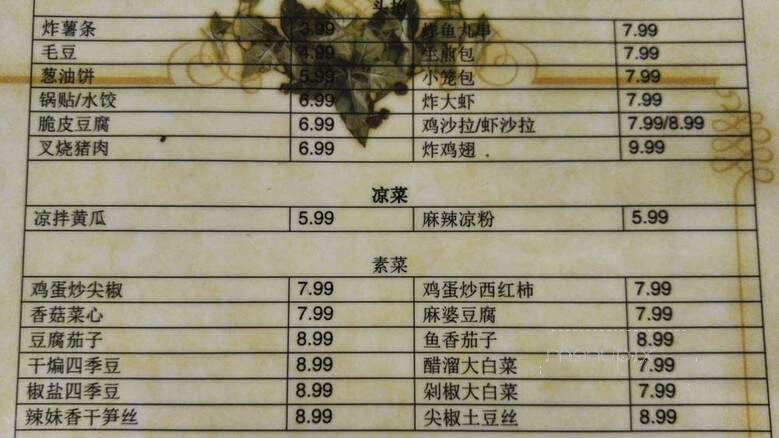 头抬
炸薯条 3.99 炸鱼丸串 7.99
毛豆 4.99 生煎包 7.99
葱油饼 5.99 小笼包 7.99
锅贴/水饺 6.99 炸大虾 7.99
脆皮豆腐 6.99 鸡沙拉/虾沙拉 7.99/8.99
叉烧猪肉 6.99 炸鸡翅 9.99
凉菜
凉拌黄瓜 5.99 麻辣凉粉 5.99
素菜
鸡蛋炒尖椒 7.99 鸡蛋炒西红柿 7.99
香菇菜心 7.99 麻婆豆腐 7.99
豆腐茄子 8.99 鱼香茄子 8.99
干煸四季豆 8.99 醋溜大白菜 7.99
椒盐四季豆 8.99 剁椒大白菜 7.99
辣妹香干笋丝 8.99 尖椒土豆丝 8.99